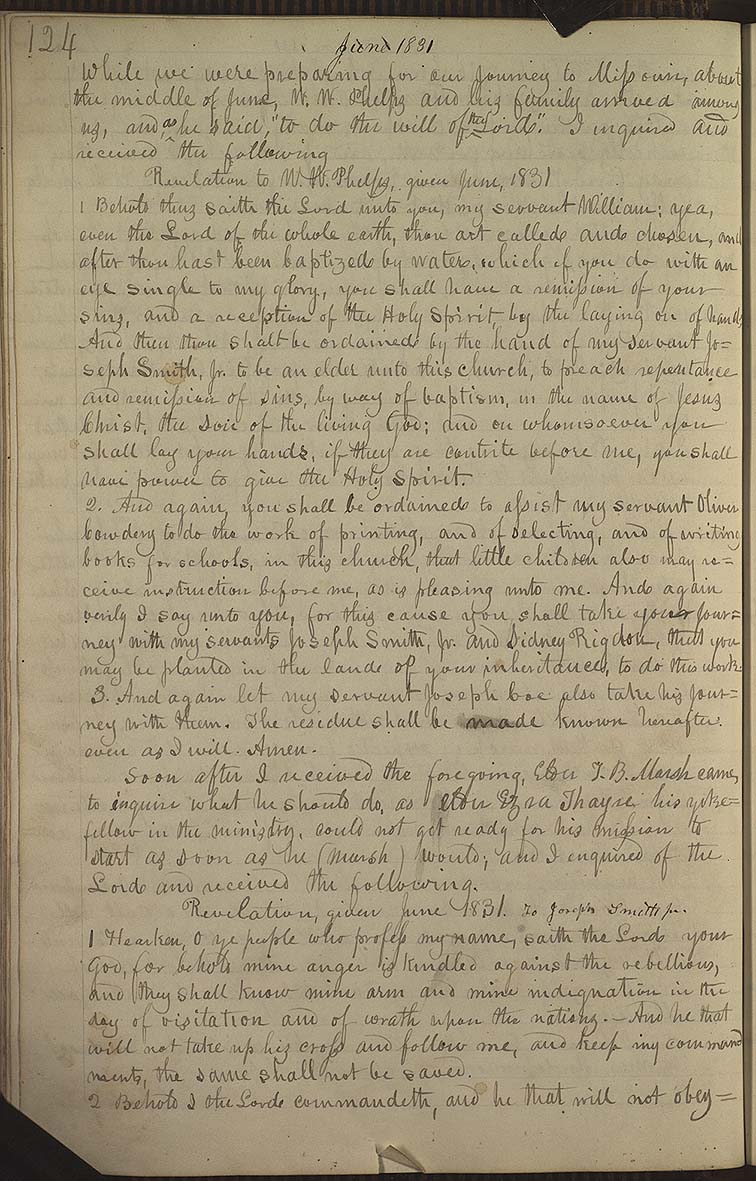 124
June 1831
While we were preparing for our journey to Missouri, about
the middle of June, W. W. Phelps and his family arrived among
us, and as he said, "to do the will of the Lord." I inquired and
received the following
Revelation to W. W. Phelps, given June, 1831
1 Behold thus saith the Lord unto you, my servant William; yea,
even the Lord of the whole earth, thou art called and chosen, and
after thou hast been baptized by water, which if you do with an
eye single to my glory, you shall have a remission of your
sins, and a reception of the Holy Spirit, by the laying on of hands
And then thou shalt be ordained by the hand of my servant Jo=
seph Smith, Jr. to be an elder unto this church, to preach repentance
and remission of sins, by way of baptism, in the name of Jesus
Christ, the Son of the living God; and on whomsoever you
shall lay your hands, if they are contrite before me, you shall
have power to give the Holy Spirit.
2. And again, you shall be ordained to assist my servant Oliver
Cowdery to do the work of printing, and of selecting, and of writing
books for schools, in this church, that little children also may re=
ceive instruction before me, as is pleasing unto me. And again
verily I say unto you, for this cause you shall take your jour=
ney with my servants Joseph Smith, Jr. and Sidney Rigdon, that you
may be planted in the land of your inheritance, to do this work.
3. And again let my servant Joseph Coe also take his jour=
ney with them. The residue shall be made known hereafter.
even as I will. Amen.
Soon after I received the foregoing, Elder T. B. Marsh came,
to inquire what he should do, as elder Ezra Thayre, his yoke=
fellow in the ministry, could not get ready for his mission to
start as soon as he (Marsh) would; and I enquired of the
Lord and received the following.
Revelation, given June 1831. To Joseph Smith jr.
1 Hearken, O ye people who profess my name, saith the Lord your
God, for behold mine anger is kindled against the rebellious,
and they shall know mine arm and mine indignation in the
day of visitation and of wrath upon the nations.—And he that
will not take up his cross and follow me, and keep my command
ments, the same shall not be saved.
2 Behold I the Lord commandeth, and he that will not obey=